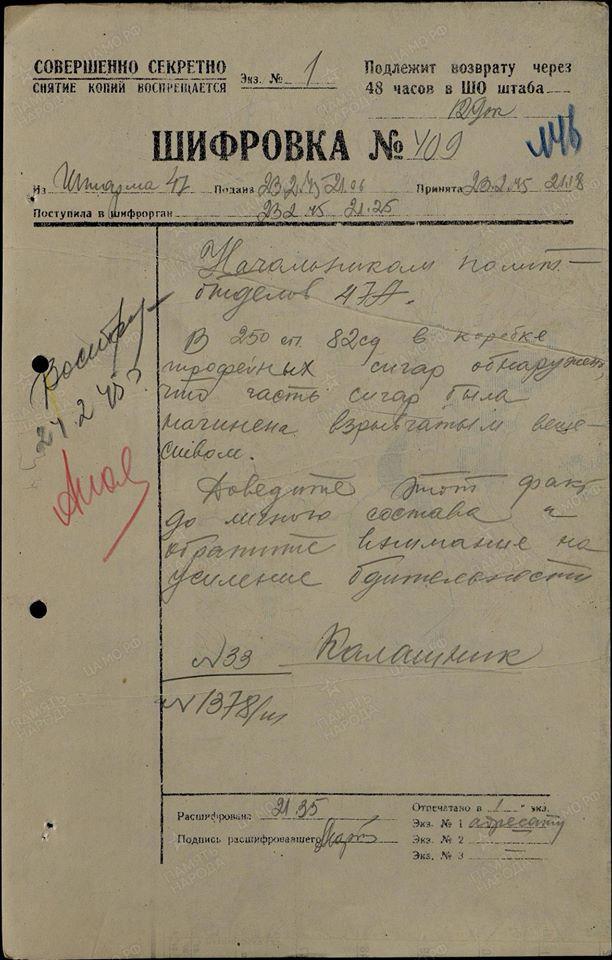 СОВЕРШЕННО СЕКРЕТНО
СНЯТИЕ КОПИЙ ВОСПРЕЩАЕТСЯ
Экз. № 1
Подлежит возврату через
48 часов в ШО штаба
ШИФРОВКА № 409
Из Штарма 47 Подана 23.2.45 21.06 Принята 23.2.45 21.18
Поступила в шифрорган 23 2 45 21.25
Начальникам полит-
отделов 47А.
В 250 сп. 82сд в коробке
трофейных сигар обнаружено,
что часть сигар была
начинена взрывчатым веще-
ством.
Доведите этот факт
до личного состава и
обратите внимание на
усиление бдительности
24.2.45
№33 Калашник
№1378/ш
Расшифрована 21 35
Подпись расшифровавшего
Отпечатано в 1 экз.
Экз. № 1 адресату
Экз. № 2 —
Экз. № 3 —
ПАМЯТЬ НАРОДА
ЦАМО.РФ